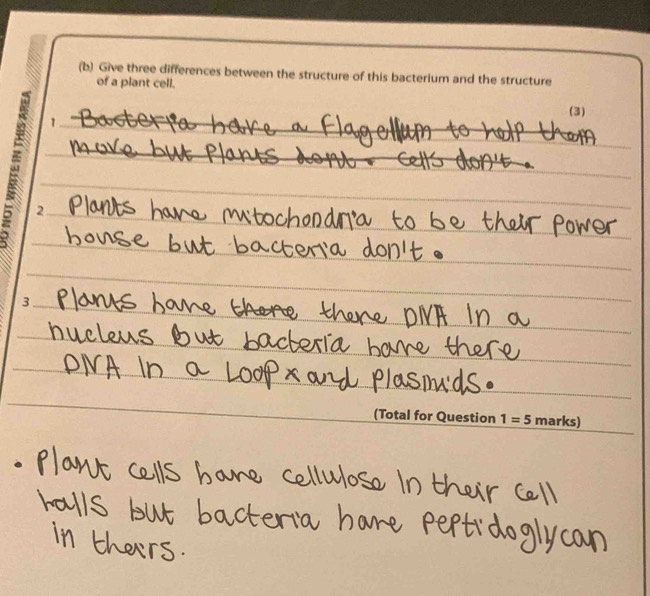 (b) Give three differences between the structure of this bacterium and the structure
of a plant cell.
(3)
DO NOT WRITE IN THIS AREA
1 Bacteria have a flagellum to help them
move but Plants dont. cells don't.
2 Plants have mitochondria to be their power
house but bacteria don't.
3 Plants have there there DNA in a
nucleus but bacteria have there
DNA in a Loop x and plasmids.
(Total for Question 1 = 5 marks)
• Plant cells have cellulose in their cell
walls but bacteria have peptidoglycan
in theirs.